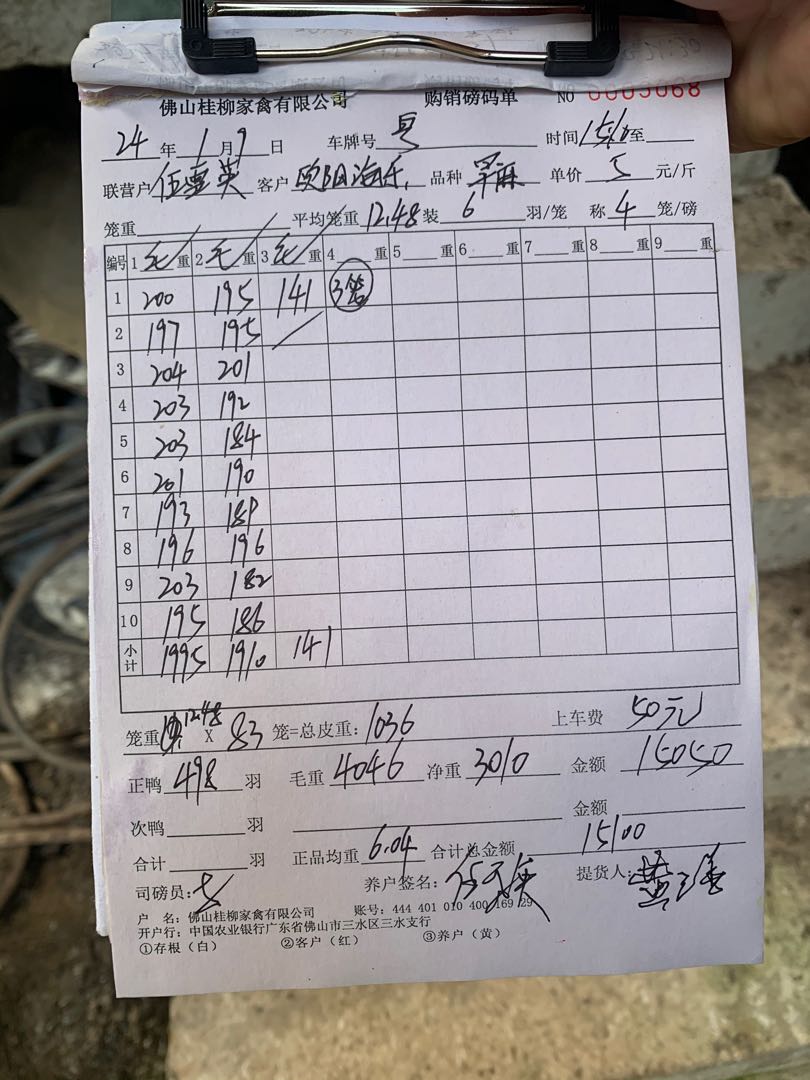 佛山桂柳家禽有限公司 购销磅码单 NO 0005068
24 年 1 月 9 日 车牌号 时间 至
联营户 客户 欧阳海 品种 单价 5 元/斤
笼重 平均笼重 12.48 装 6 羽/笼 称 4 笼/磅
编号 1 毛 重 2 毛 重 3 毛 重 4 重 5 重 6 重 7 重 8 重 9 重
1 200 195 141 3笼
2 197 195
3 204 201
4 203 192
5 203 184
6 201 190
7 193 189
8 196 196
9 203 182
10 195 186
小计 1995 1910 141
笼重 12.48 X 83 笼=总皮重: 1036 上车费 50元
正鸭 498 羽 毛重 4046 净重 3010 金额 15050
次鸭 羽 金额
合计 羽 正品均重 6.04 合计总金额 15100
司磅员: 养户签名: 提货人:
户 名: 佛山桂柳家禽有限公司 账号: 444 401 010 400 169 29
开户行: 中国农业银行广东省佛山市三水区三水支行
①存根（白） ②客户（红） ③养户（黄）